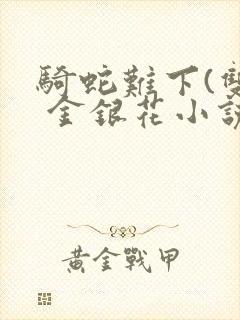 騎蛇難下(雙
金銀花小說
黃金戰甲